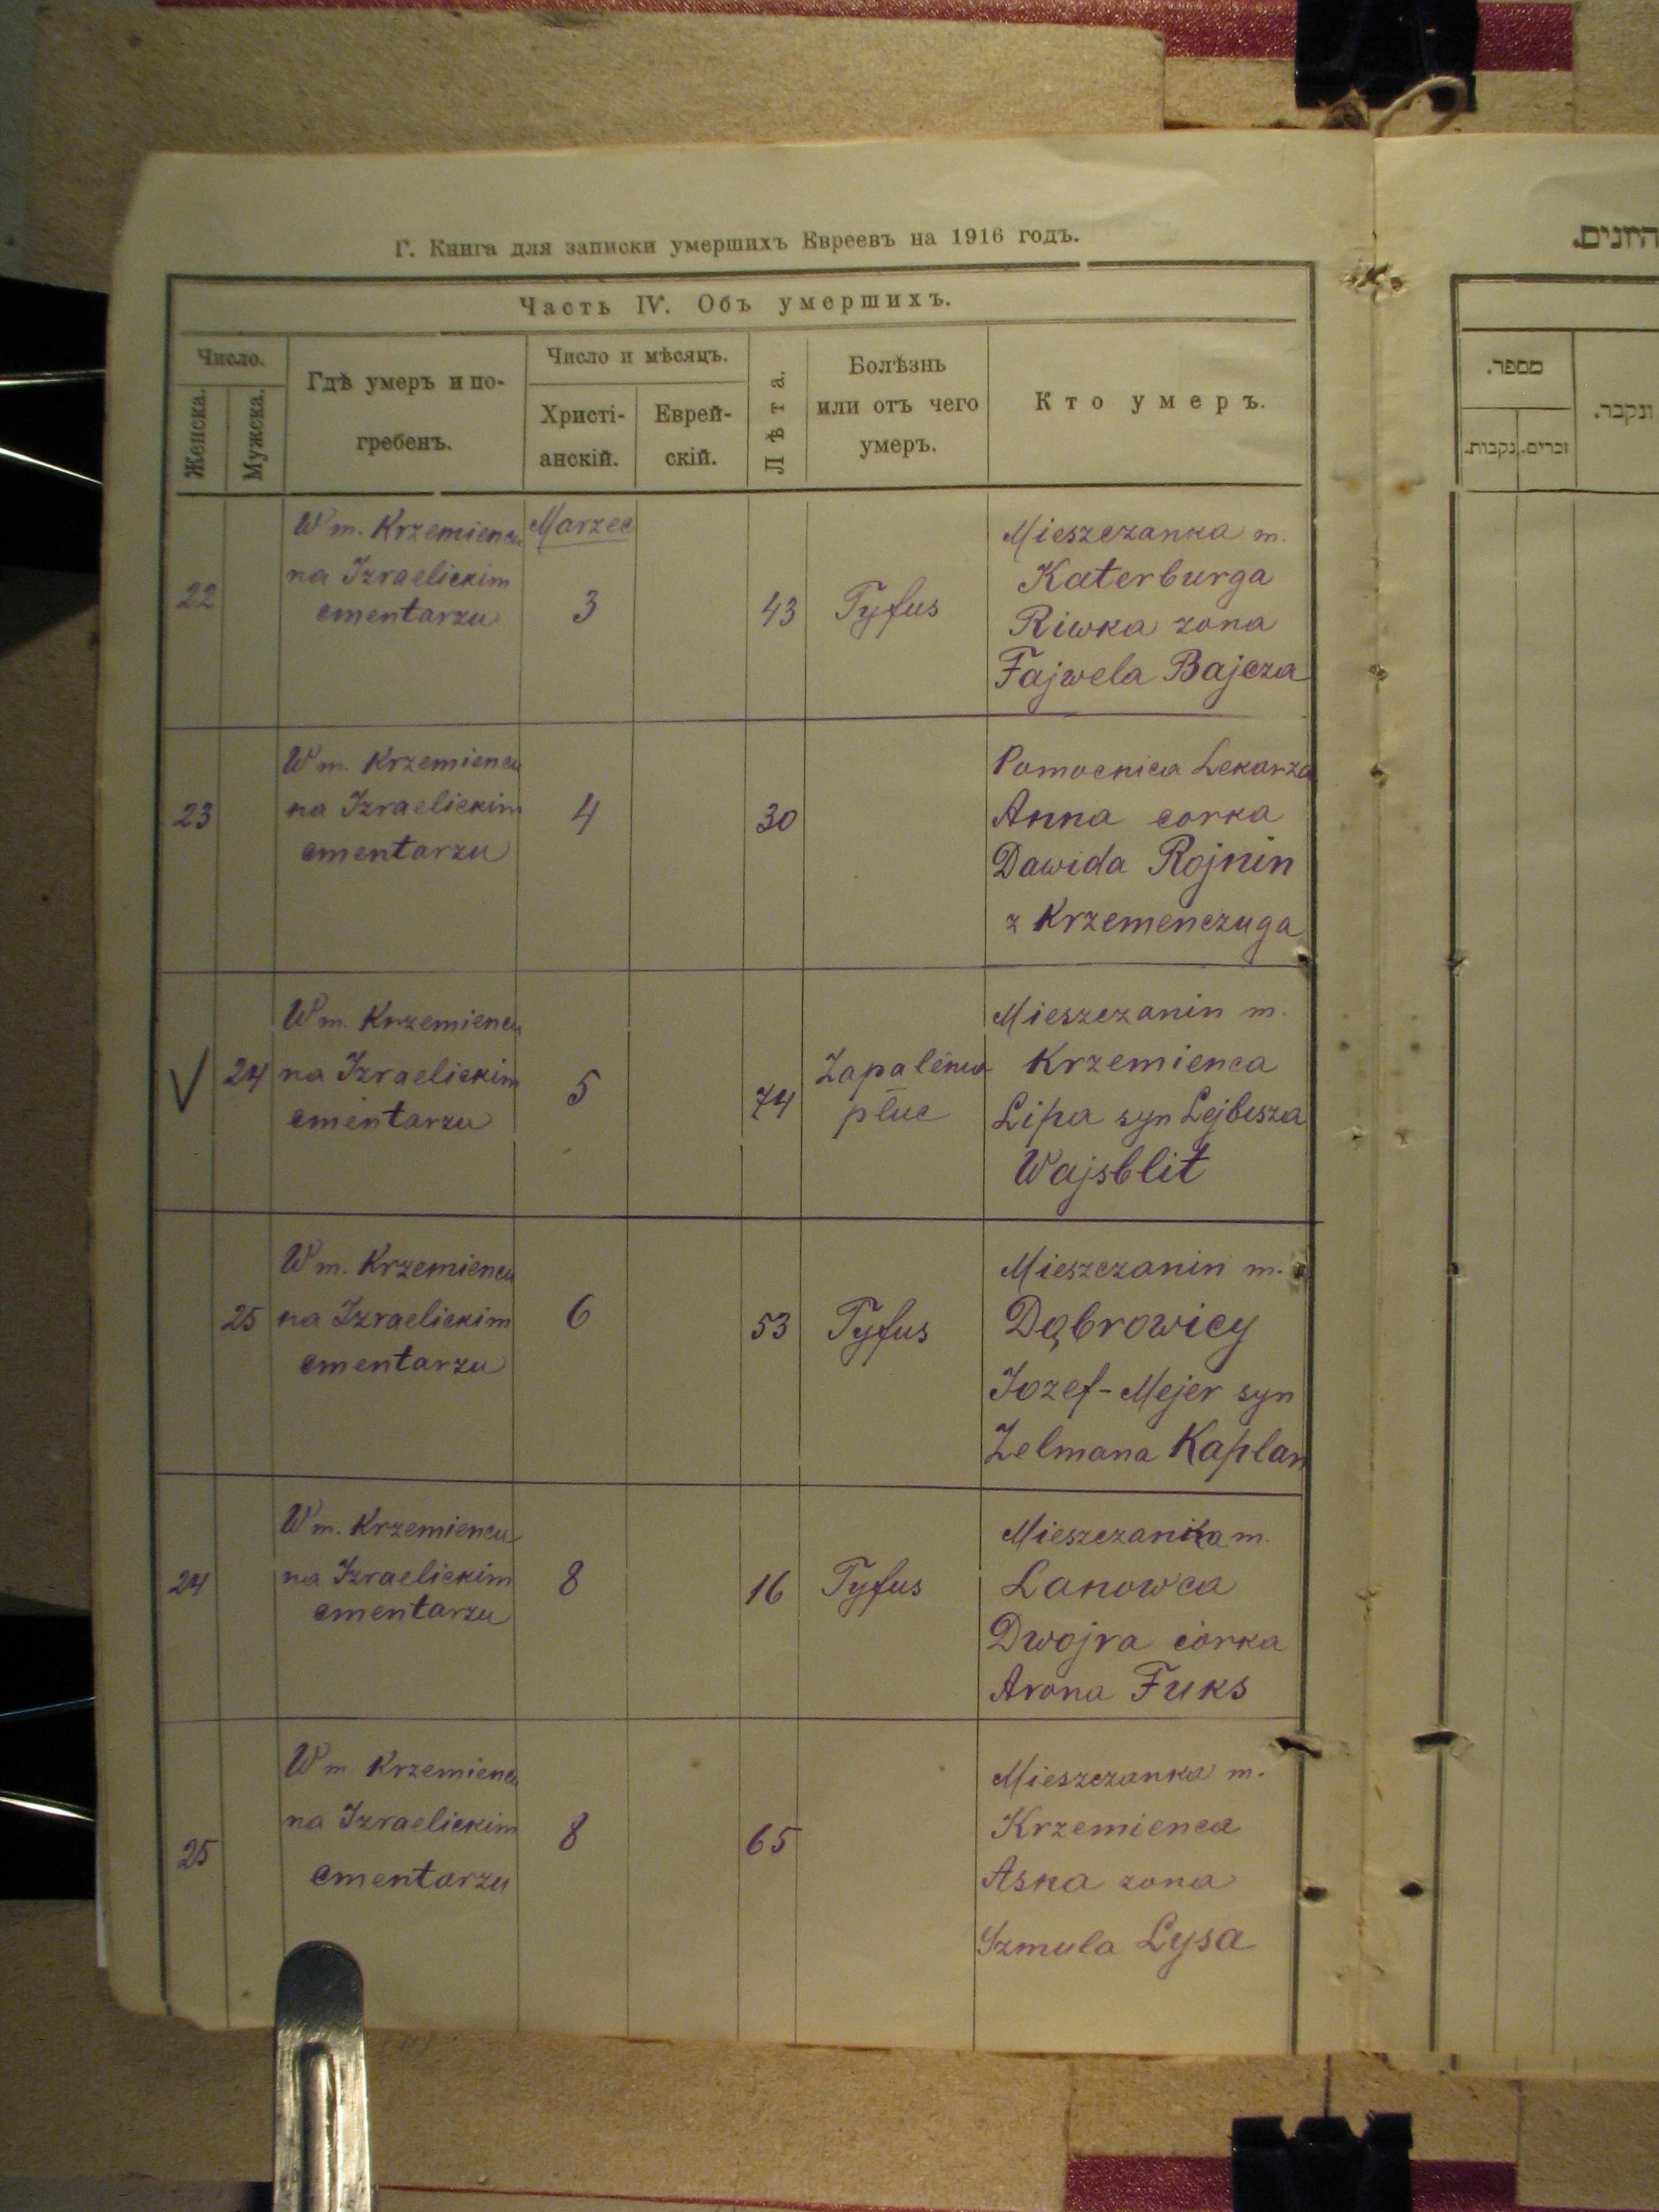 Г. Книга для записки умершихъ Евреевъ на 1916 годъ.
Часть IV. Объ умершихъ.
Число.
Женска.
Мужска.
Гдѣ умеръ и по-
гребенъ.
Число и мѣсяцъ.
Христі-
анскій.
Еврей-
скій.
Лѣта.
Болѣзнь
или отъ чего
умеръ.
Кто умеръ.
22
W m. Krzemiencu
na Izraelickim
cmentarzu
Marzec
3
43
Tyfus
Mieszczanka m.
Katerburga
Riwka zona
Fajwela Bajcza
23
W m. Krzemiencu
na Izraelickim
cmentarzu
4
30
Pomocnica Lekarza
Anna corka
Dawida Rojnin
z Krzemenczuga
24
W m. Krzemiencu
na Izraelickim
cmentarzu
5
74
Zapalenia
płuc
Mieszczanin m.
Krzemienca
Lipa syn Lejbisza
Wajsblit
25
W m. Krzemiencu
na Izraelickim
cmentarzu
6
53
Tyfus
Mieszczanin m.
Dąbrowicy
Jozef-Mejer syn
Zelmana Kaplan
24
W m. Krzemiencu
na Izraelickim
cmentarzu
8
16
Tyfus
Mieszczanka m.
Lanowca
Dwojra córka
Arona Fuks
25
W m Krzemiencu
na Izraelickim
cmentarzu
8
65
Mieszczanka m.
Krzemienca
Asna zona
Szmula Lysa
מספר.
זכרים.
נקבות.
ונקבר.